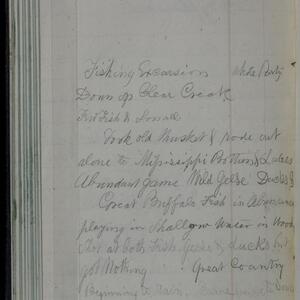 Fishing Excursion whole Party
Down up Clear Creek
Few Fish & Small
Took old Musket & rode out
alone to Mississippi Bottoms & Lakes
Abundant game Wild Geese Ducks &
Great Buffalo Fish in Abundance
playing in Shallow Water in Woods
Shot at both Fish Geese & ducks but
got Nothing Great Country
Beginning to Rain